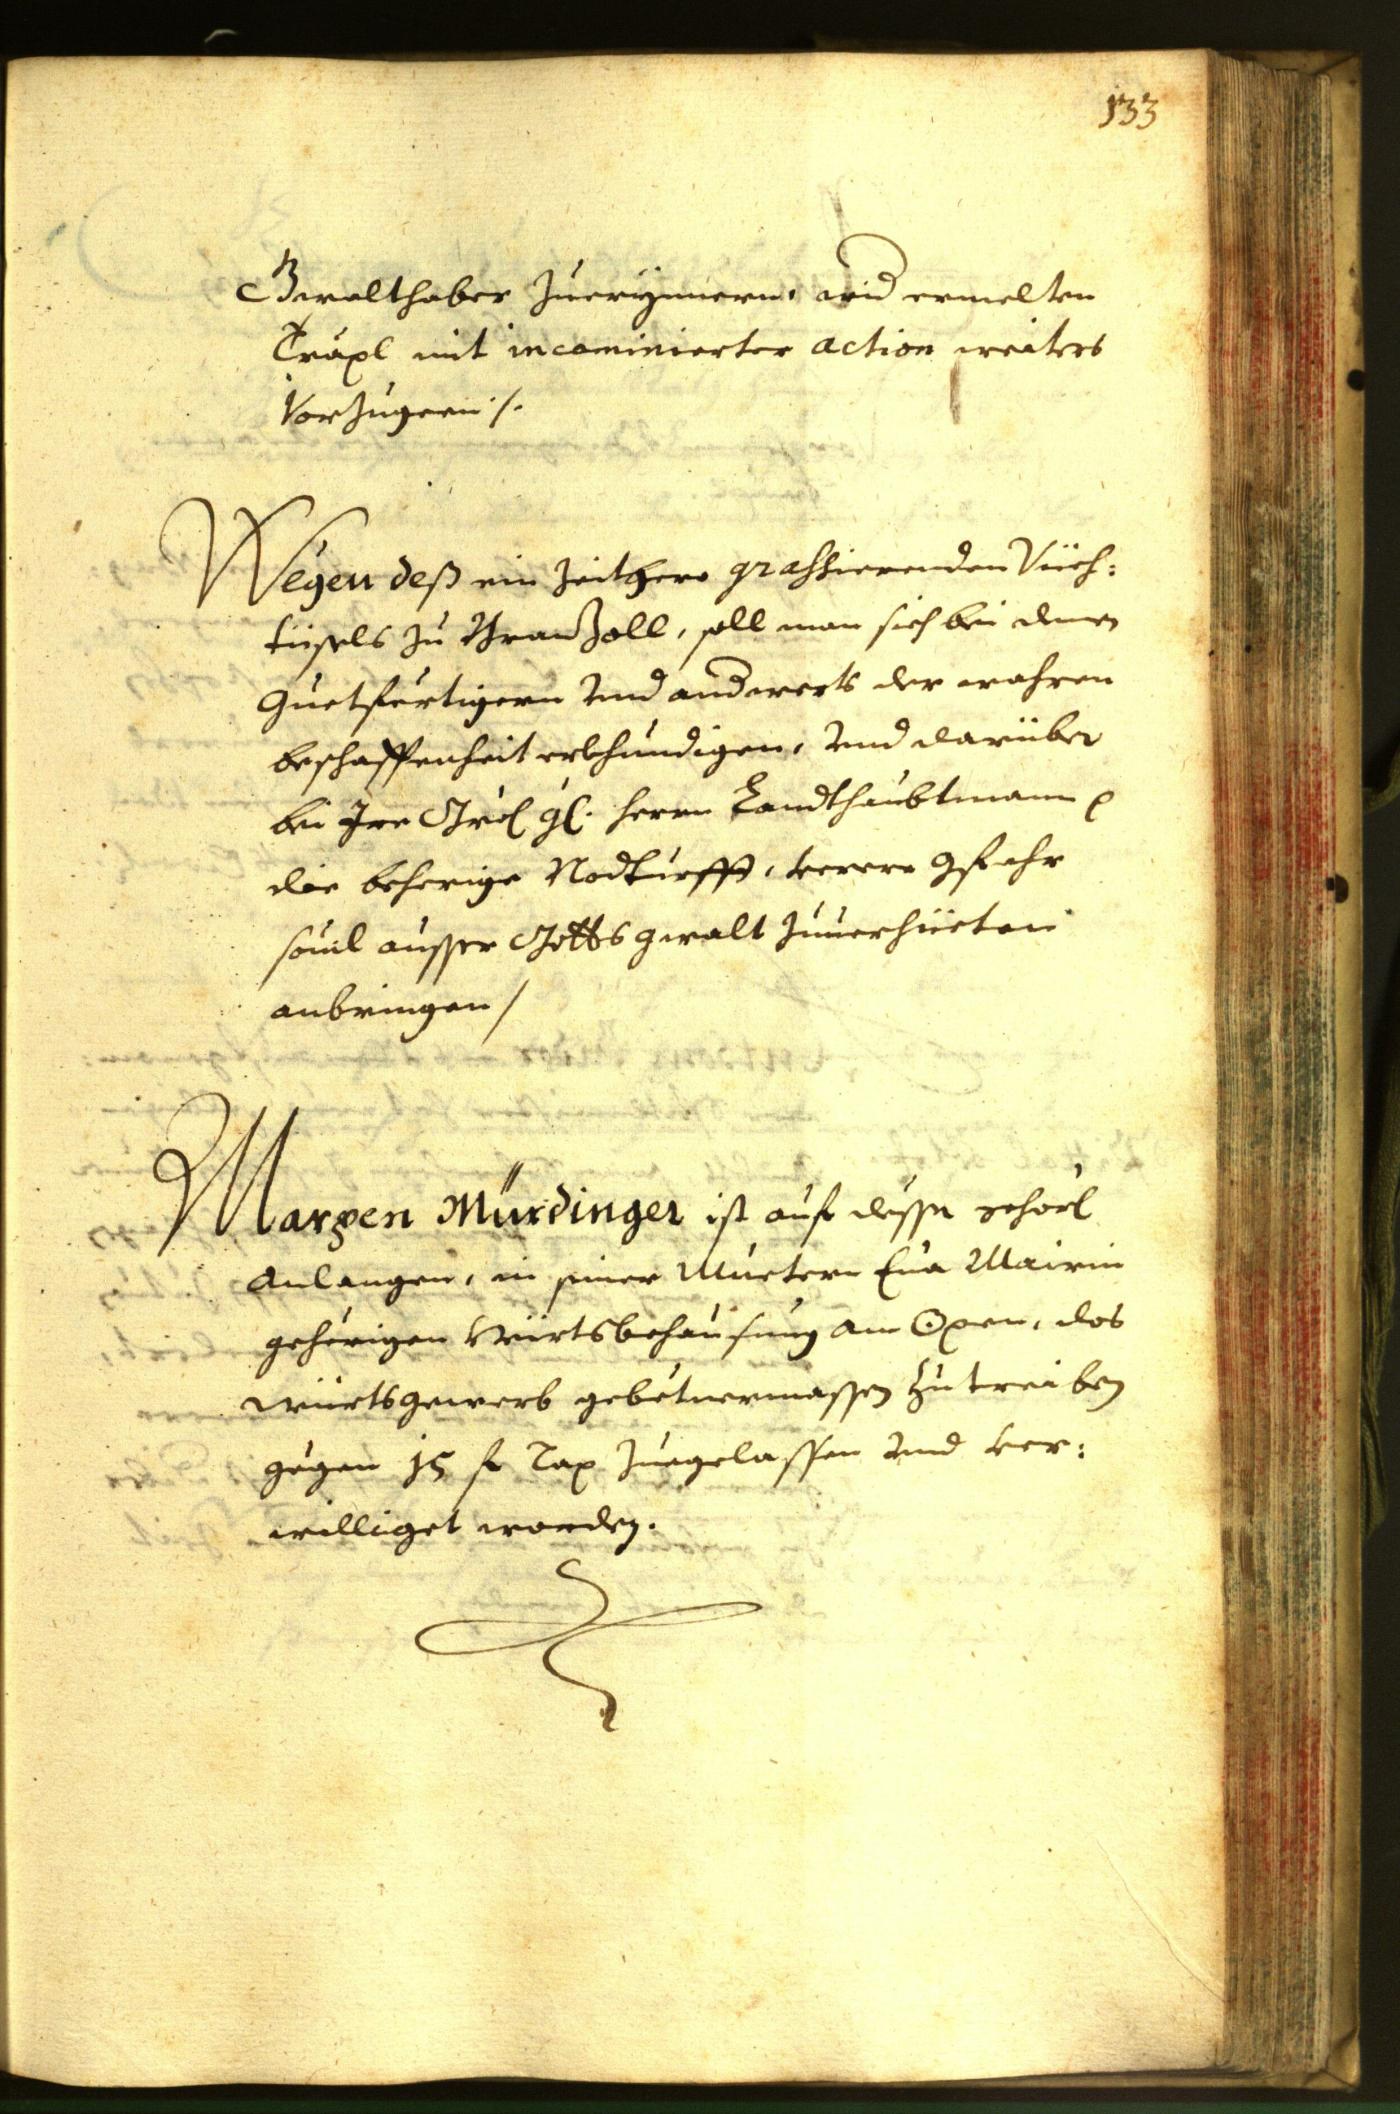 133
Gwalthaber zuerynnern, wid ermelten
Träxl mit incaminierter action weiters
Vorzugeen /.
Wegen deß ein Zeithero grassierenden Viech:
tüsels zu Branzoll, soll man sich bei denen
Guetfertigern vnd anderwerts der wahren
beschaffenheit erkhundigen, vnd darüber
bei Ire Gn: gl: herrn Landtshaubtmann p
die behörige Nodturfft, verrere Gfahr
souil ausser Gottsgwalt zuuerhüeten
anbringen /
Marxen Mürdinger ist auf dessen gehorl
Anlangen, in seiner Muetern Eua Mairin
gehörigen Würtsbehausung am Oxen, das
Würtsgewerb gebetnermassen zu treiben
gegen 15 fl Tax zuegelassen vnd ver:
williget worden.